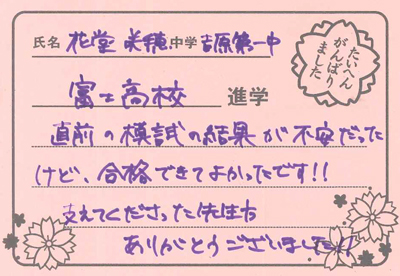 氏名 花堂 咲穂 中学 吉原第一中
たいへん
がんばり
ました
富士高校 進学
直前の模試の結果が不安だった
けど、合格できてよかったです!!
支えてくださった先生方
ありがとうございました!!